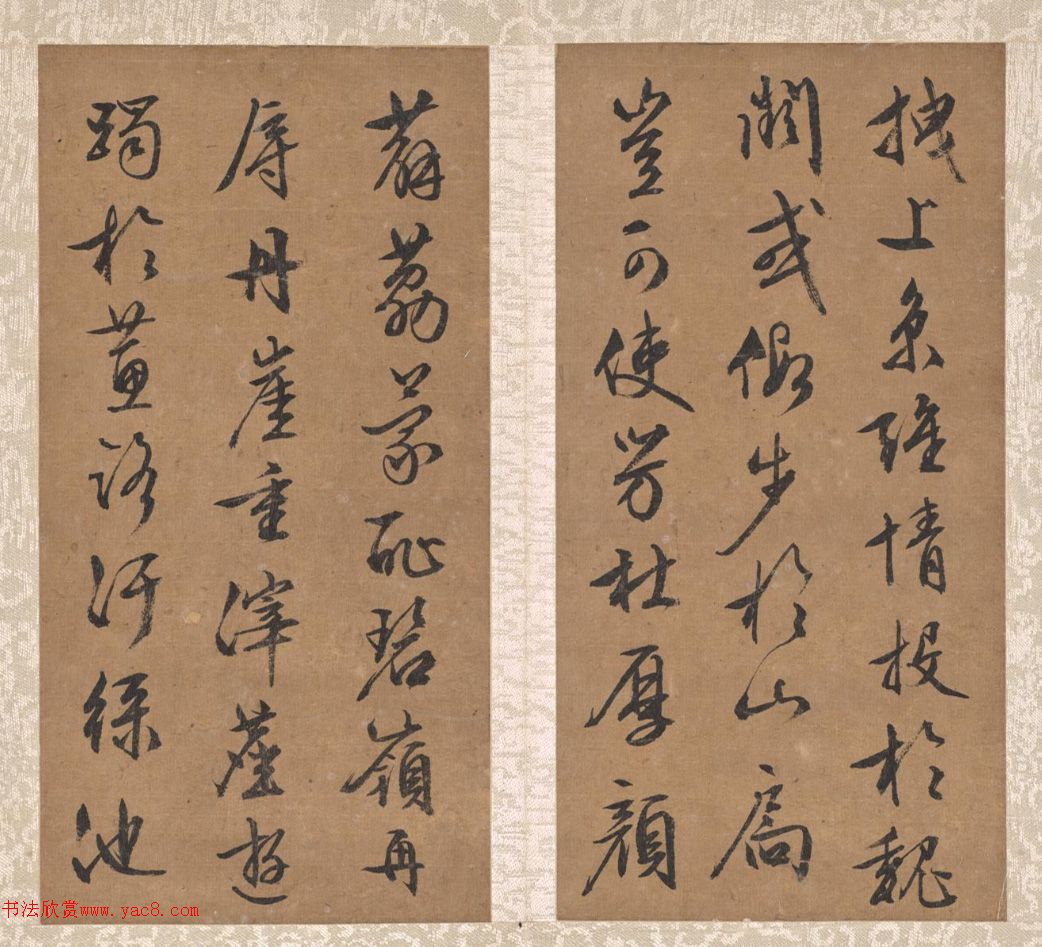 拽上京雖情投於魏
闕或假步於山扃
豈可使芳杜厚顏
薜荔蒙耻碧嶺再
辱丹崖重滓塵遊
躅於蕙路汙淥池
书法欣赏www.yac8.com